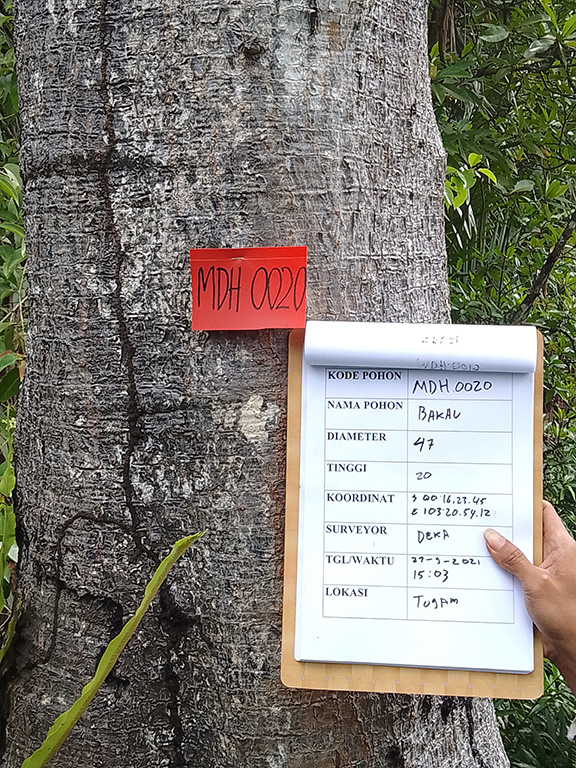 MDH 0020
KODE POHON MDH 0020
NAMA POHON BAKAU
DIAMETER 47
TINGGI 20
KOORDINAT S 00.16.23.45
E 103.20.54.12
SURVEYOR DEKA
TGL/WAKTU 27-9-2021
15:03
LOKASI TUGAM